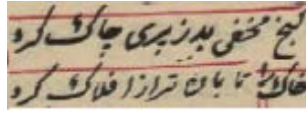 گنج مخفی بد ز پری چاک کرد
خاک را تابان تر از افلاک کرد